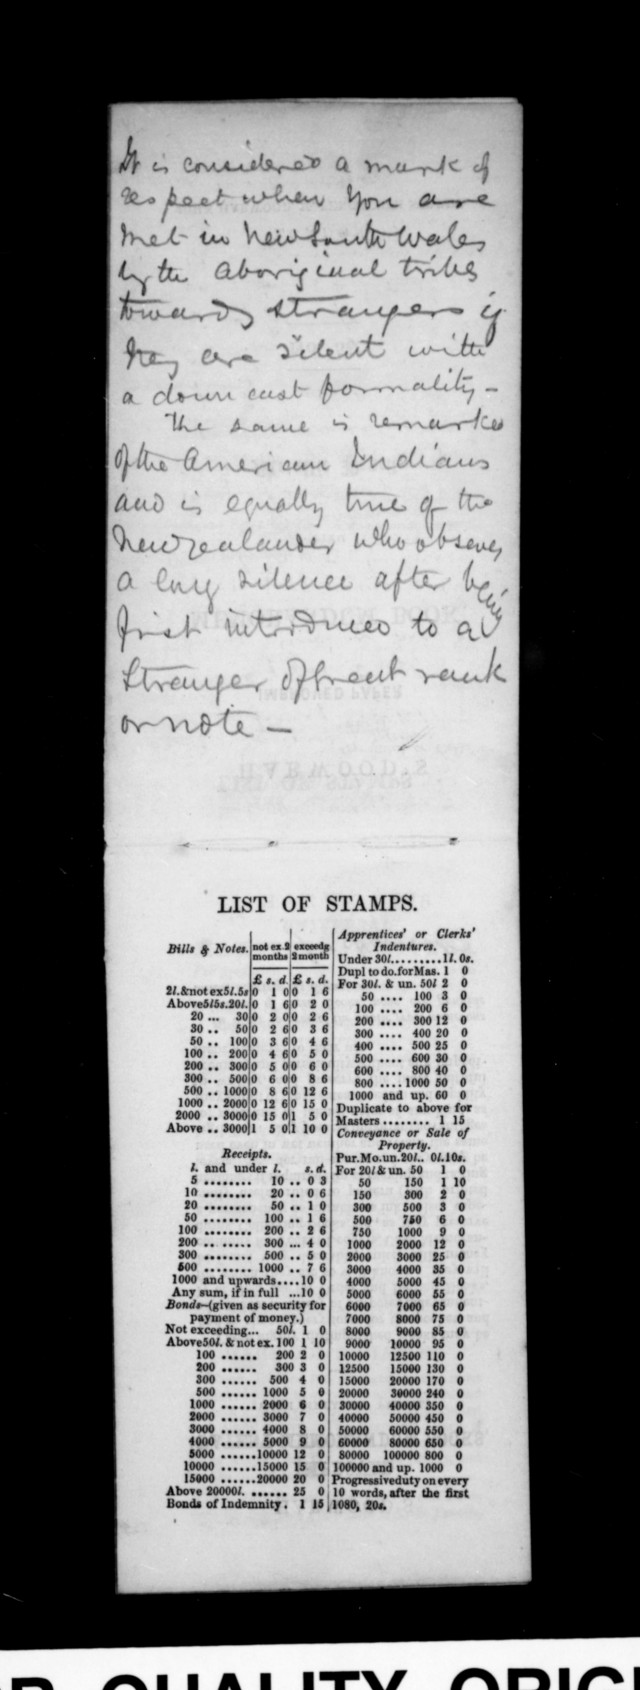 It is considered a mark of
respect when you are
met in New South Wales
by the aboriginal tribes
towards strangers if
they are silent with
a down cast formality -
The same is remarked
of the American Indians
and is equally true of the
New Zealander who observes
a long silence after being
first introduced to a
Stranger of great rank
or note -
LIST OF STAMPS.
Bills & Notes. not ex. 2 months exceedg 2 month
£ s. d. £ s. d.
2l. & not ex 5l. 5s 0 1 0 0 1 6
Above 5l 5s. 20l. 0 1 6 0 2 0
20 ... 30 0 2 0 0 2 6
30 .. 50 0 2 6 0 3 6
50 .. 100 0 3 6 0 4 6
100 .. 200 0 4 6 0 5 0
200 .. 300 0 5 0 0 6 0
300 .. 500 0 6 0 0 8 6
500 .. 1000 0 8 6 0 12 6
1000 .. 2000 0 12 6 0 15 0
2000 .. 3000 0 15 0 1 5 0
Above .. 3000 1 5 0 1 10 0
Receipts.
l. and under l. s. d.
5 ........ 10 .. 0 3
10 ......... 20 .. 0 6
20 ......... 50 .. 1 0
50 ........ 100 .. 1 6
100 ........ 200 .. 2 6
200 ........ 300 ... 4 0
300 ........ 500 .. 5 0
500 ........ 1000 .. 7 6
1000 and upwards.... 10 0
Any sum, if in full ... 10 0
Bonds-(given as security for
payment of money.)
Not exceeding... 50l. 1 0
Above 50l. & not ex. 100 1 10
100 ...... 200 2 0
200 ...... 300 3 0
300 ...... 500 4 0
500 ...... 1000 5 0
1000 ...... 2000 6 0
2000 ...... 3000 7 0
3000 ...... 4000 8 0
4000 ...... 5000 9 0
5000 ...... 10000 12 0
10000 ...... 15000 15 0
15000 ...... 20000 20 0
Above 20000l. ...... 25 0
Bonds of Indemnity. 1 15
Apprentices' or Clerks'
Indentures.
Under 30l......... 1l. 0s.
Dupl to do. for Mas. 1 0
For 30l. & un. 50l 2 0
50 .... 100 3 0
100 .... 200 6 0
200 .... 300 12 0
300 .... 400 20 0
400 .... 500 25 0
500 .... 600 30 0
600 .... 800 40 0
800 .... 1000 50 0
1000 and up. 60 0
Duplicate to above for
Masters ........ 1 15
Conveyance or Sale of
Property.
Pur. Mo. un. 20l.. 0l. 10s.
For 20l & un. 50 1 0
50 150 1 10
150 300 2 0
300 500 3 0
500 750 6 0
750 1000 9 0
1000 2000 12 0
2000 3000 25 0
3000 4000 35 0
4000 5000 45 0
5000 6000 55 0
6000 7000 65 0
7000 8000 75 0
8000 9000 85 0
9000 10000 95 0
10000 12500 110 0
12500 15000 130 0
15000 20000 170 0
20000 30000 240 0
30000 40000 350 0
40000 50000 450 0
50000 60000 550 0
60000 80000 650 0
80000 100000 800 0
100000 and up. 1000 0
Progressive duty on every
10 words, after the first
1080, 20s.
QUALITY